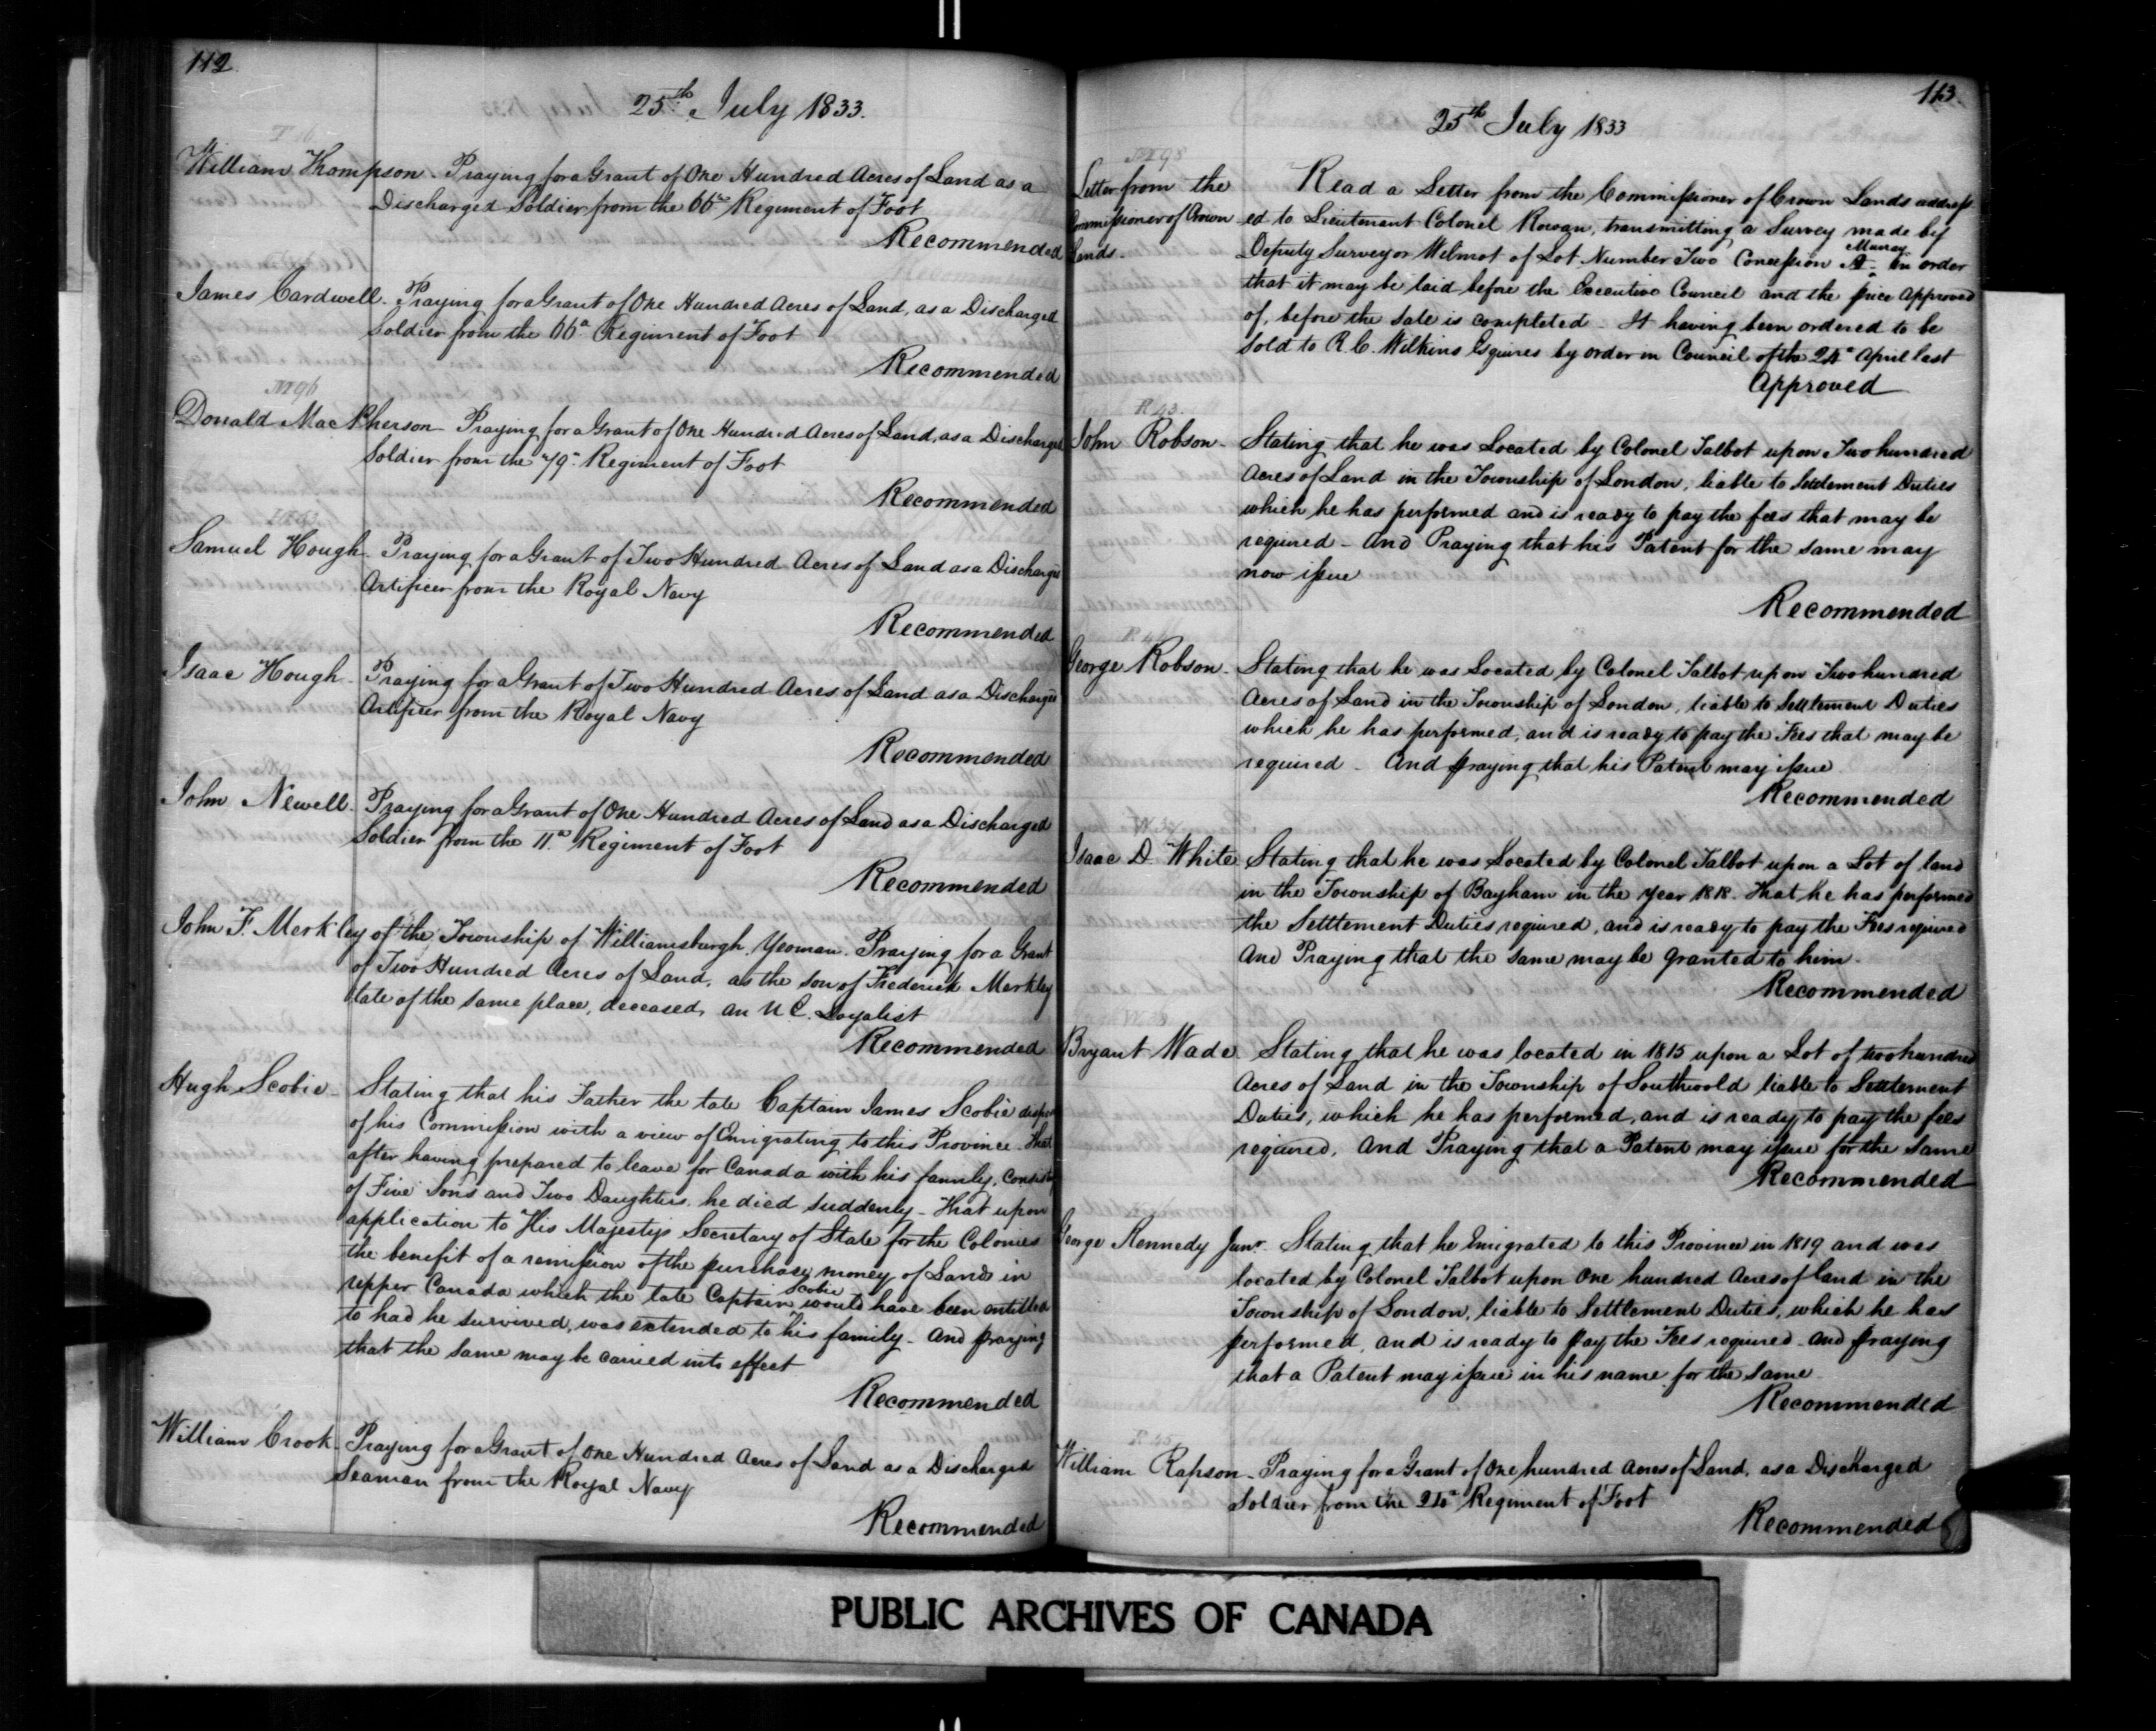 112
25th July 1833.
William Thompson - Praying for a Grant of One Hundred Acres of Land as a
Discharged Soldier from the 66th Regiment of Foot
Recommended
James Cardwell - Praying for a Grant of One Hundred Acres of Land, as a Discharged
Soldier from the 66th Regiment of Foot
Recommended
M 96
Donald MacPherson Praying for a Grant of One Hundred Acres of Land, as a Discharged
Soldier from the 79th Regiment of Foot
Recommended
Samuel Hough - Praying for a Grant of Two Hundred Acres of Land as a Discharged
Artificer from the Royal Navy
Recommended
Isaac Hough - Praying for a Grant of Two Hundred Acres of Land as a Discharged
Artificer from the Royal Navy
Recommended
John Newell - Praying for a Grant of One Hundred Acres of Land as a Discharged
Soldier from the 11th Regiment of Foot
Recommended
John F. Merkley of the Township of Williamsburgh Yeoman. Praying for a Grant
of Two Hundred Acres of Land, as the son of Frederick Merkley
late of the same place, deceased, an U.E. Loyalist
Recommended
Hugh Scobie - Stating that his Father the late Captain James Scobie
of his Commission with a view of Emigrating to this Province - That
after having prepared to leave for Canada with his family,
of Five Sons and Two Daughters, he died suddenly - That upon
application to His Majestys Secretary of State for the Colonies
the benefit of a remission of the purchase money of Lands in
upper Canada which the late Captain Scobie would have been entitled
to had he survived, was extended to his family - And praying
that the same may be carried into effect
Recommended
William Crook - Praying for a Grant of One Hundred Acres of Land as a Discharged
Seaman from the Royal Navy
Recommended
113
25th July 1833
M 98
Letter from the Commissioner of Crown Lands. Read a Letter from the Commissioner of Crown Lands address
ed to Lieutenant Colonel Rowan, transmitting a Survey made by
Deputy Surveyor Wilmot of Lot Number Two Concession A. Murray in order
that it may be laid before the Executive Council and the price Approved
of, before the Sale is completed - It having been ordered to be
Sold to R. C. Wilkins Esquires by order in Council of the 24th April last
Approved
R 43.
John Robson - Stating that he was Located by Colonel Talbot upon Two hundred
Acres of Land in the Township of London, liable to Settlement Duties
which he has performed and is ready to pay the fees that may be
required - And Praying that his Patent for the same may
now issue
Recommended
George Robson - Stating that he was Located by Colonel Talbot upon Two hundred
Acres of Land in the Township of London, liable to Settlement Duties
which he has performed, and is ready to pay the Fees that may be
required - And praying that his Patent may issue
Recommended
Isaac D. White Stating that he was Located by Colonel Talbot upon a Lot of land
in the Township of Bayham in the year 1818. That he has performed
the Setttlement Duties required, and is ready to pay the Fees required
And Praying that the same may be granted to him -
Recommended
Bryant Wade - Stating that he was located in 1815 upon a Lot of two hundred
Acres of Land in the Township of Southwold liable to Settlement
Duties, which he has performed, and is ready to pay the fees
required, And Praying that a Patent may issue for the Same
Recommended
George Kennedy Junr. Stating that he Emigrated to this Province in 1819 and was
located by Colonel Talbot upon One hundred Acres of land in the
Township of London, liable to Settlement Duties, which he has
performed, and is ready to pay the Fees required - and praying
that a Patent may issue in his name for the Same -
Recommended
R 45
William Rapson - Praying for a Grant of One hundred Acres of Land, as a Discharged
Soldier from the Regiment of Foot
Recommended
PUBLIC ARCHIVES OF CANADA